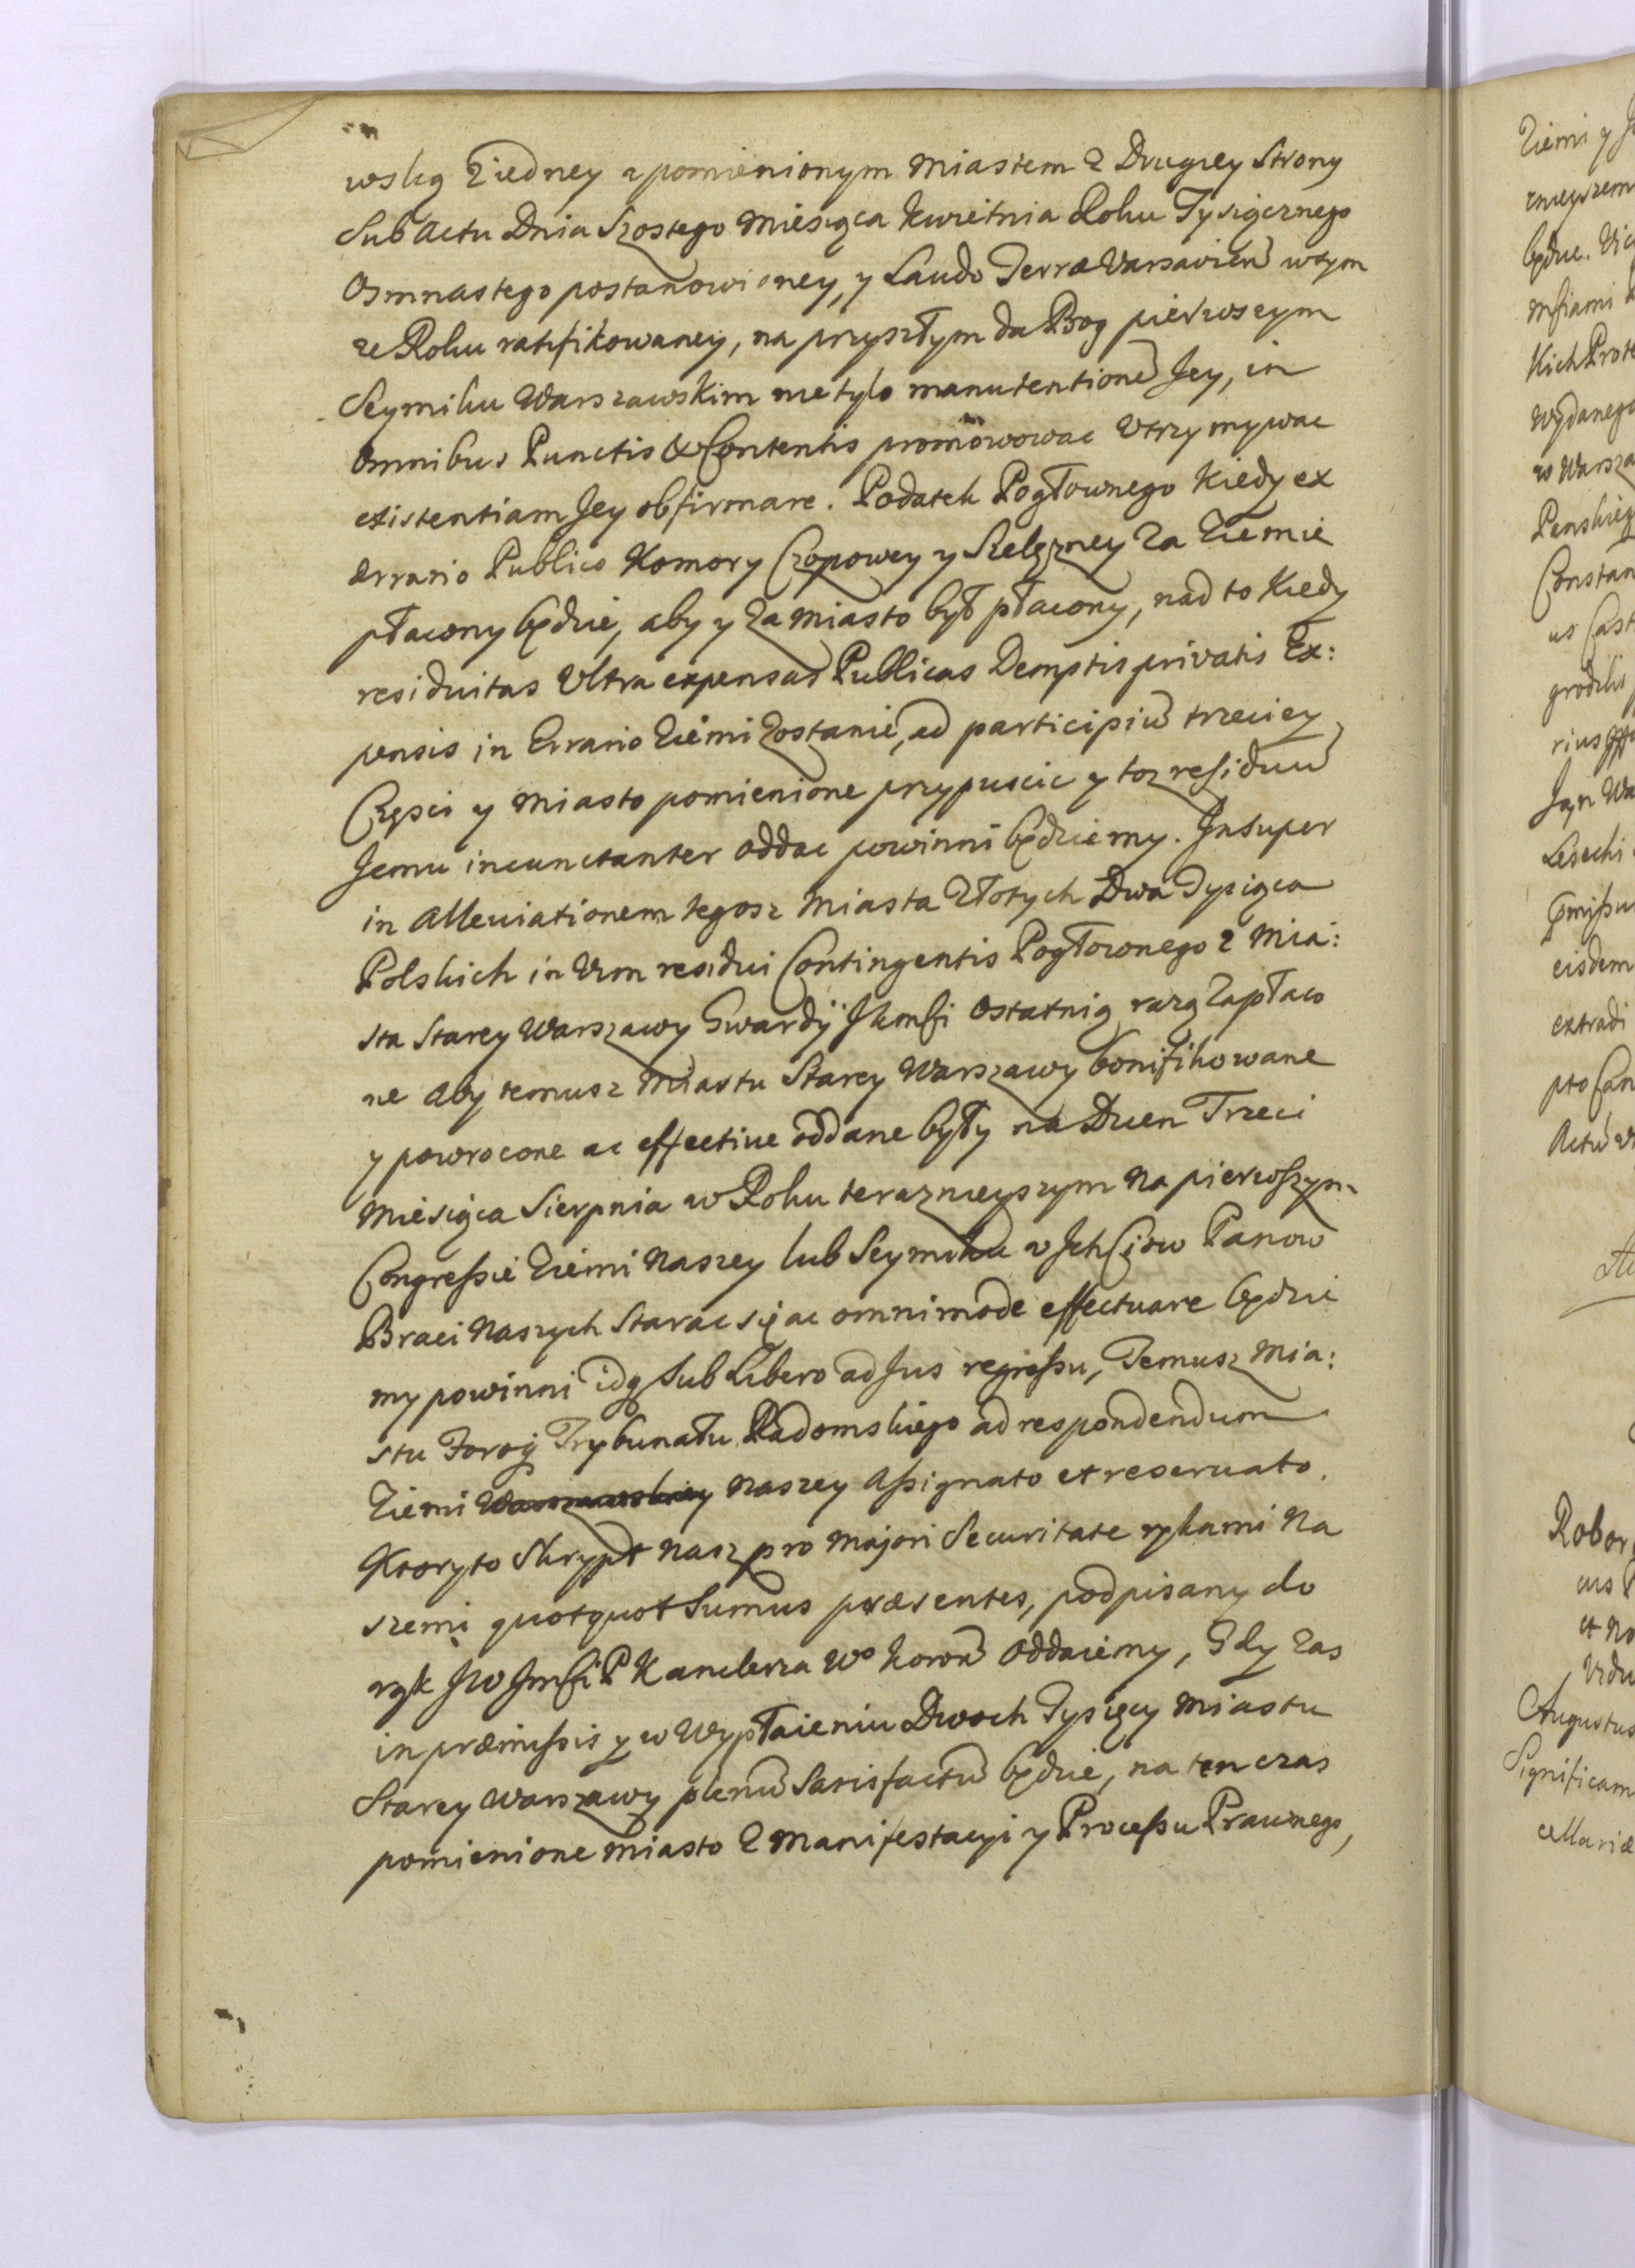 wską Ziedney a pomienionym Miastem z Drugiey Strony
Sub Actu Dnia Szostego Miesiąca Kwietnia Roku Tysiącznego
Osmnastego postanowioney, y Laudo Terræ Varsavien̄ wtym
ze Roku ratifikowaney, na przyszłym da Bog pierwszym
Seymiku Warszawskim nie tylo manutentionē Jey, in
Omnibus Punctis & Contentis promowowac Utrzymywac
existentiam Jey obfirmare. Podatek Pogłownego kiedy ex
Ærrario Publico Komory Czopowey y Szelężney Za Ziemie
płacony będzie, aby y za Miasto był płacony, nad to kiedy
residuitas Ultra expensas Publicas Demptis privatis Ex:
pensis in Errario Ziemi Zostanie, ad participiū trzeciey
Częsci y Miasto pomienione przypuscic y toz residuū
Jemu incunctanter oddac powinni będziemy. Insuper
in Alleviationem tegosz Miasta Złotych Dwa Tysiąca
Polskich in Vim residui Contingentis Pogłownego z Mia:
sta Starey Warszawy Gwardÿ JKMsci Ostatnią razą Zapłaco
ne Aby temusz Miastu Starey Warszawy bonifikowane
y powrocone ac effective oddane były na Dzien Trzeci
Miesiąca Sierpnia w Roku teraznieyszym Na pierwszym
Congressie Ziemi Naszey lub Seymiku u Ich Ciow Panow
Braci Naszych Starac się ac omnimode effectuare będzie
my powinni idq Sub Libero ad Jus regressu, Temusz Mia:
stu Foroq Trybunału Radomskiego ad respondendum
Ziemi Warszawskiey Naszey Assignato et reservato.
Ktoryto Skrypt Nasz pro Majori Securitate rękami Na
szemi quotquot Sumus præsentes, podpisany do
rąk JW JMsci P Kanclerza Wo Koron̄ Oddaiemy, Gdy zas
in præmissis y w Wypłaieniu Dwoch Tysięcy Miastu
Starey Warszawy plenū Satisfactū będzie, na ten czas
pomienione Miasto z Manifestacyi y Processu Prawnego,